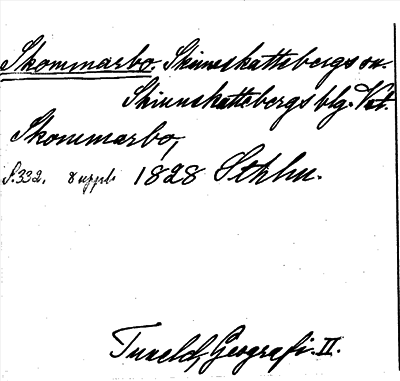 Skommarbo. Skinnskattebergs sn.
Skinnskattebergs blg. Vstm.
Skommarbo,
S. 332. 8 uppl. 1828 Sthlm.
Tuneld, Geografi. II.